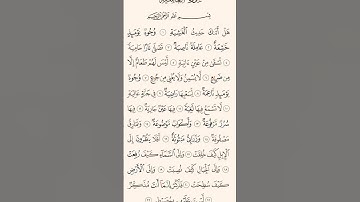 بِسْمِ اللَّهِ الرَّحْمَٰنِ الرَّحِيمِ
هَلْ أَتَىٰكَ حَدِيثُ الْغَٰشِيَةِ ١ وُجُوهٌ يَوْمَئِذٍ
خَٰشِعَةٌ ٢ عَامِلَةٌ نَّاصِبَةٌ ٣ تَصْلَىٰ نَارًا حَامِيَةً
٤ تُسْقَىٰ مِنْ عَيْنٍ ءَانِيَةٍ ٥ لَّيْسَ لَهُمْ طَعَامٌ إِلَّا
مِن ضَرِيعٍ ٦ لَّا يُسْمِنُ وَلَا يُغْنِي مِن جُوعٍ ٧ وُجُوهٌ
يَوْمَئِذٍ نَّاعِمَةٌ ٨ لِّسَعْيِهَا رَاضِيَةٌ ٩ فِي جَنَّةٍ عَالِيَةٍ
١٠ لَّا تَسْمَعُ فِيهَا لَٰغِيَةً ١١ فِيهَا عَيْنٌ جَارِيَةٌ ١٢ فِيهَا
سُرُرٌ مَّرْفُوعَةٌ ١٣ وَأَكْوَابٌ مَّوْضُوعَةٌ ١٤ وَنَمَارِقُ
مَصْفُوفَةٌ ١٥ وَزَرَابِيُّ مَبْثُوثَةٌ ١٦ أَفَلَا يَنظُرُونَ إِلَى
الْإِبِلِ كَيْفَ خُلِقَتْ ١٧ وَإِلَى السَّمَاءِ كَيْفَ رُفِعَتْ
١٨ وَإِلَى الْجِبَالِ كَيْفَ نُصِبَتْ ١٩ وَإِلَى الْأَرْضِ
كَيْفَ سُطِحَتْ ٢٠ فَذَكِّرْ إِنَّمَا أَنتَ مُذَكِّرٌ
٢١ لَّسْتَ عَلَيْهِم بِمُصَيْطِرٍ ٢٢